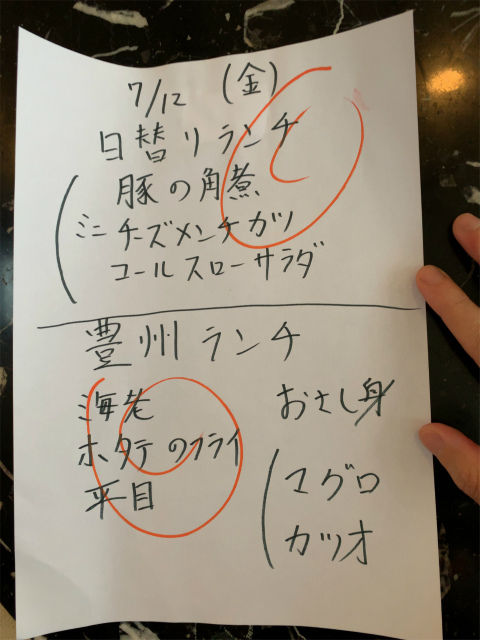 7/12 (金)
日替りランチ
豚の角煮
ミニチーズメンチカツ
コールスローサラダ
豊州ランチ
海老
ホタテのフライ
平目
おさし身
マグロ
カツオ